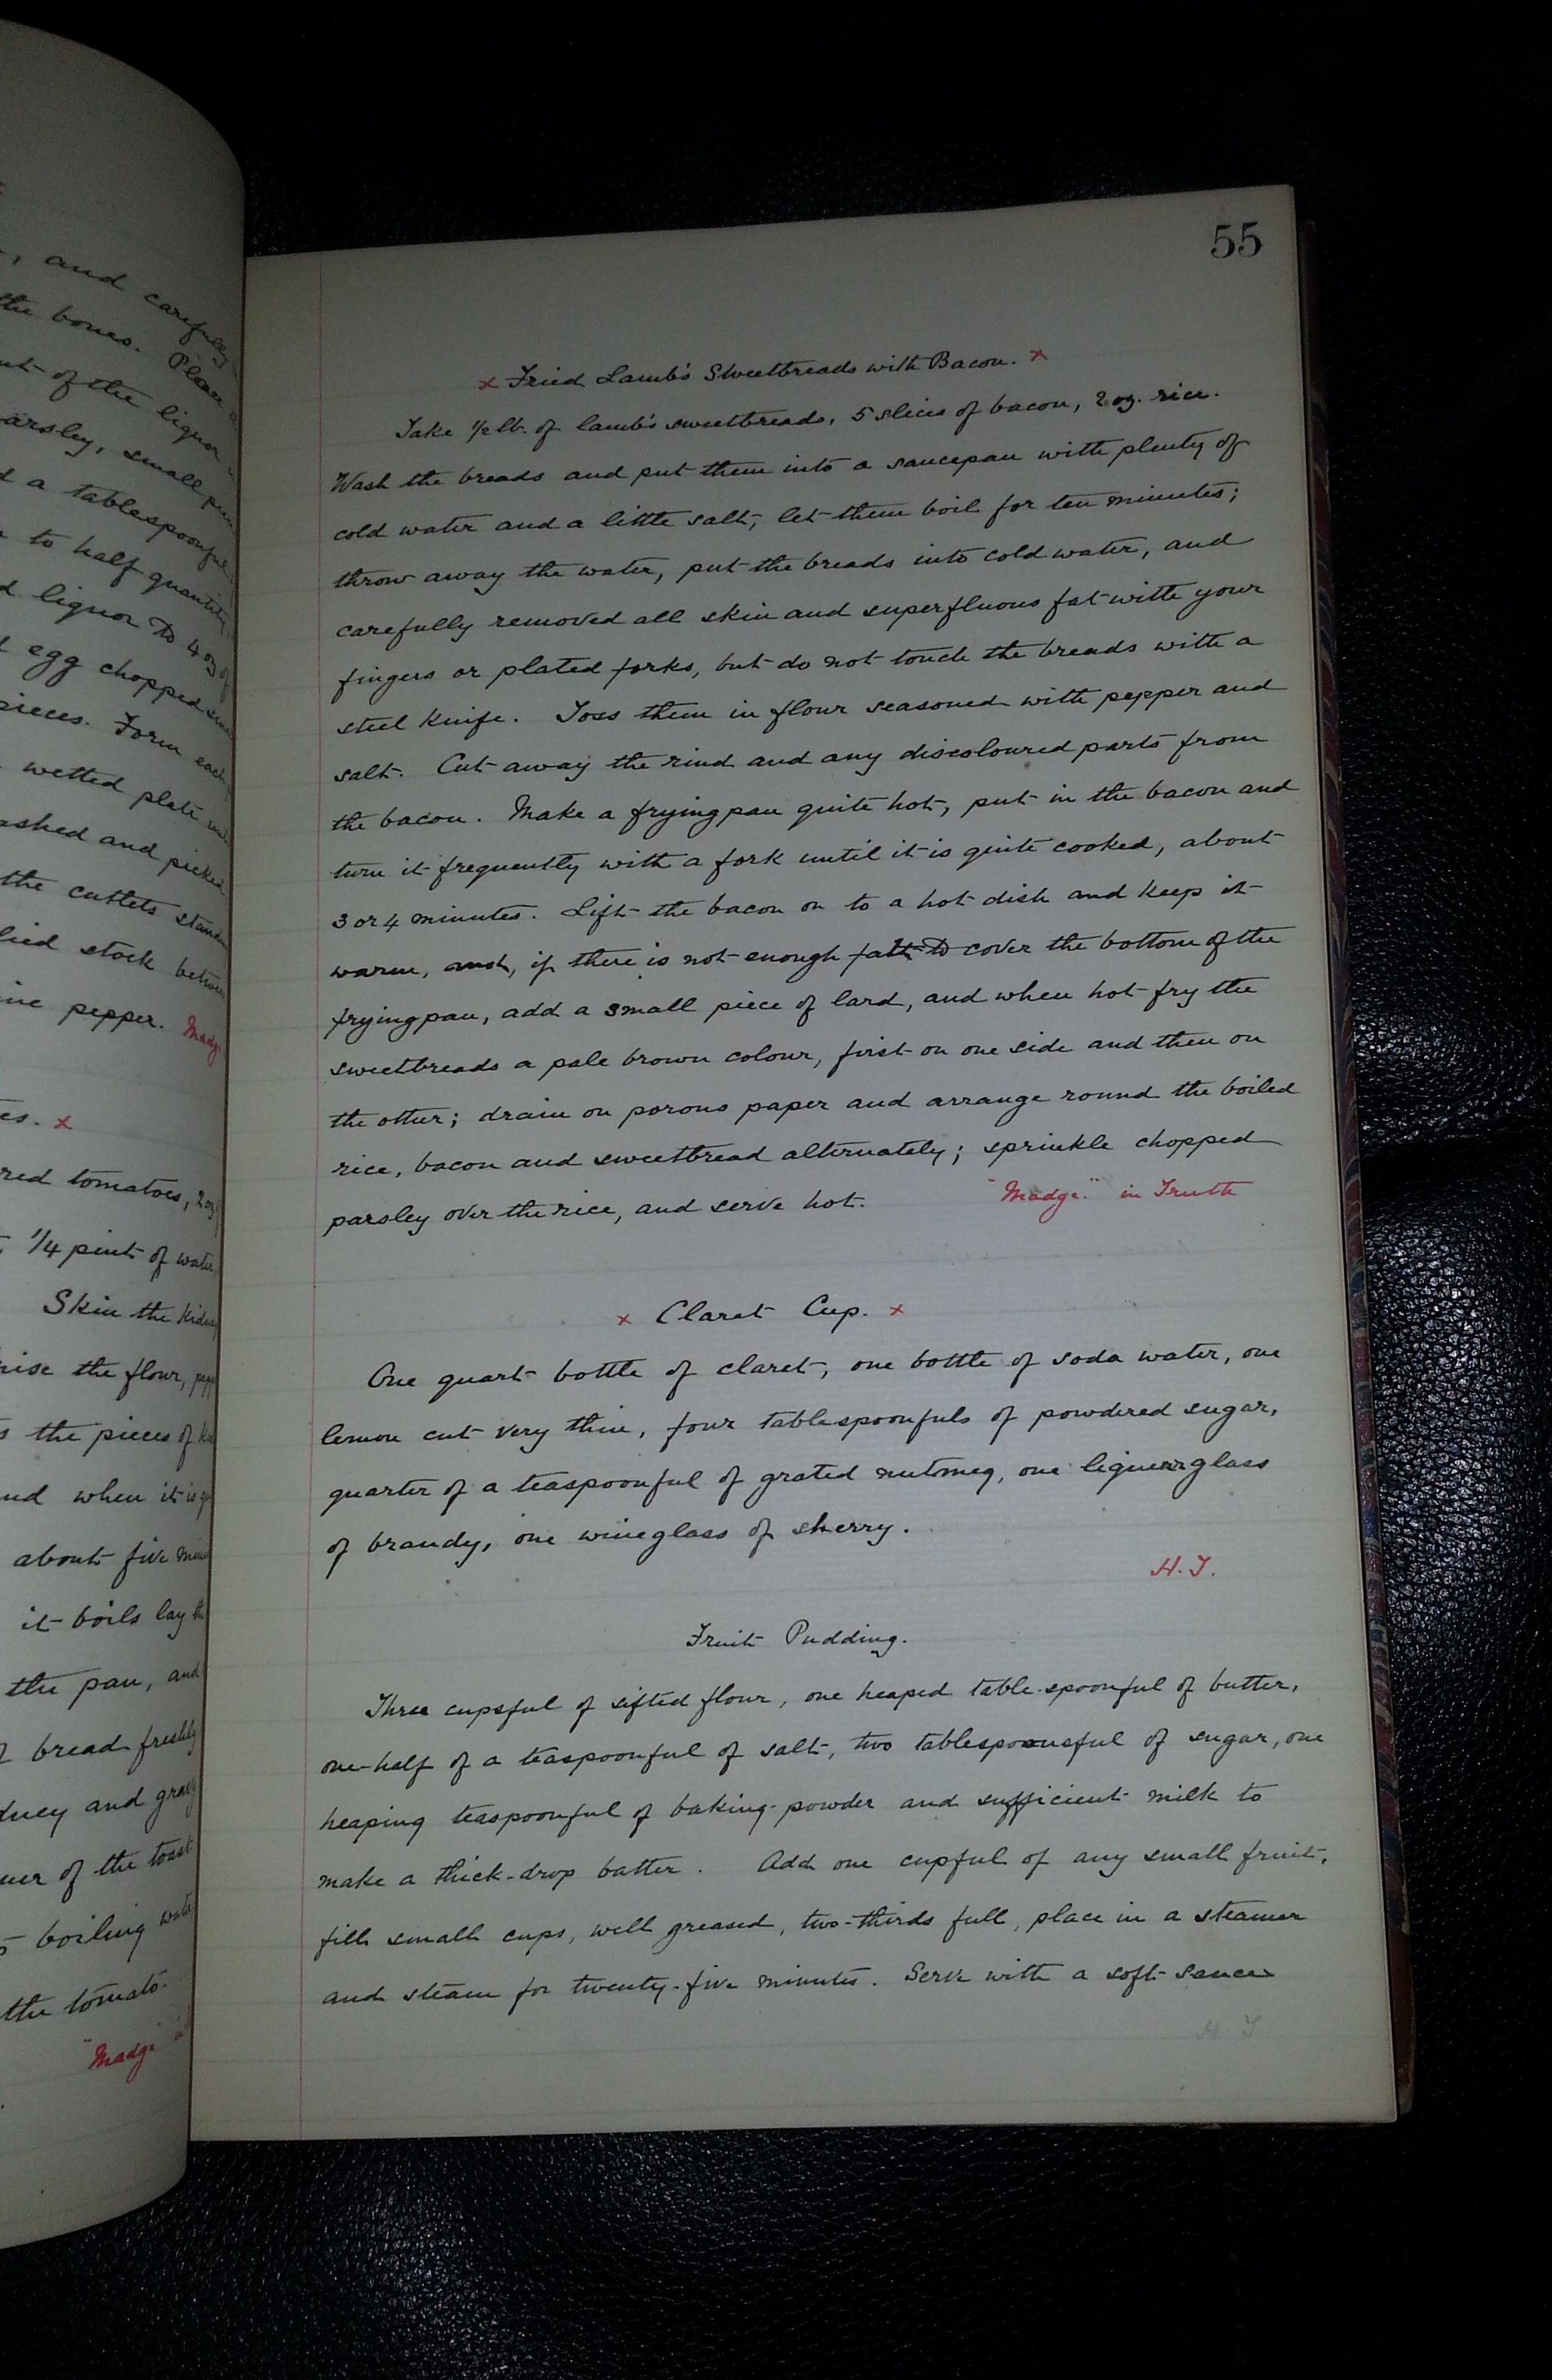 , and carefully
the bones. Place
out of the liquor
arsley, small
d a tablespoonful
to half quantity,
d liquor to 4 oz of
egg chopped
pieces. Form each
wetted plate
ashed and picked
the cutlets
lied stock between
ine pepper. Madge
es. x
red tomatoes, 2 oz
1/4 pint of water
Skin the Kidney
the flour,
s the pieces of
nd when it is
about five
it boils lay the
the pan, and
bread freshly
dney and gravy
ner of the toast
boiling water
the tomato.
"Madge"
55
x Fried Lamb's Sweetbreads with Bacon. x
Take 1/2 lb. of lamb's sweetbreads, 5 slices of bacon, 2 oz. rice.
Wash the breads and put them into a saucepan with plenty of
cold water and a little salt; let them boil for ten minutes;
throw away the water, put the breads into cold water, and
carefully removed all skin and superfluous fat with your
fingers or plated forks, but do not touch the breads with a
steel knife. Toss them in flour seasoned with pepper and
salt. Cut away the rind and any discoloured parts from
the bacon. Make a fryingpan quite hot, put in the bacon and
turn it frequently with a fork until it is quite cooked, about
3 or 4 minutes. Lift the bacon on to a hot dish and keep it
warm, and, if there is not enough fatt to cover the bottom of the
fryingpan, add a small piece of lard, and when hot fry the
sweetbreads a pale brown colour, first on one side and then on
the other; drain on porous paper and arrange round the boiled
rice, bacon and sweetbread alternately; sprinkle chopped
parsley over the rice, and serve hot. "Madge." in Truth
x Claret Cup. x
One quart bottle of claret, one bottle of soda water, one
lemon cut very thin, four tablespoonfuls of powdered sugar,
quarter of a teaspoonful of grated nutmeg, one liqueurglass
of brandy, one wineglass of sherry.
H.T.
Fruit Pudding.
Three cupsful of sifted flour, one heaped table-spoonful of butter,
one-half of a teaspoonful of salt, two tablespoonsful of sugar, one
heaping teaspoonful of baking-powder and sufficient milk to
make a thick-drop batter. Add one cupful of any small fruit,
fill small cups, well greased, two-thirds full, place in a steamer
and steam for twenty-five minutes. Serve with a soft sauce
H.T